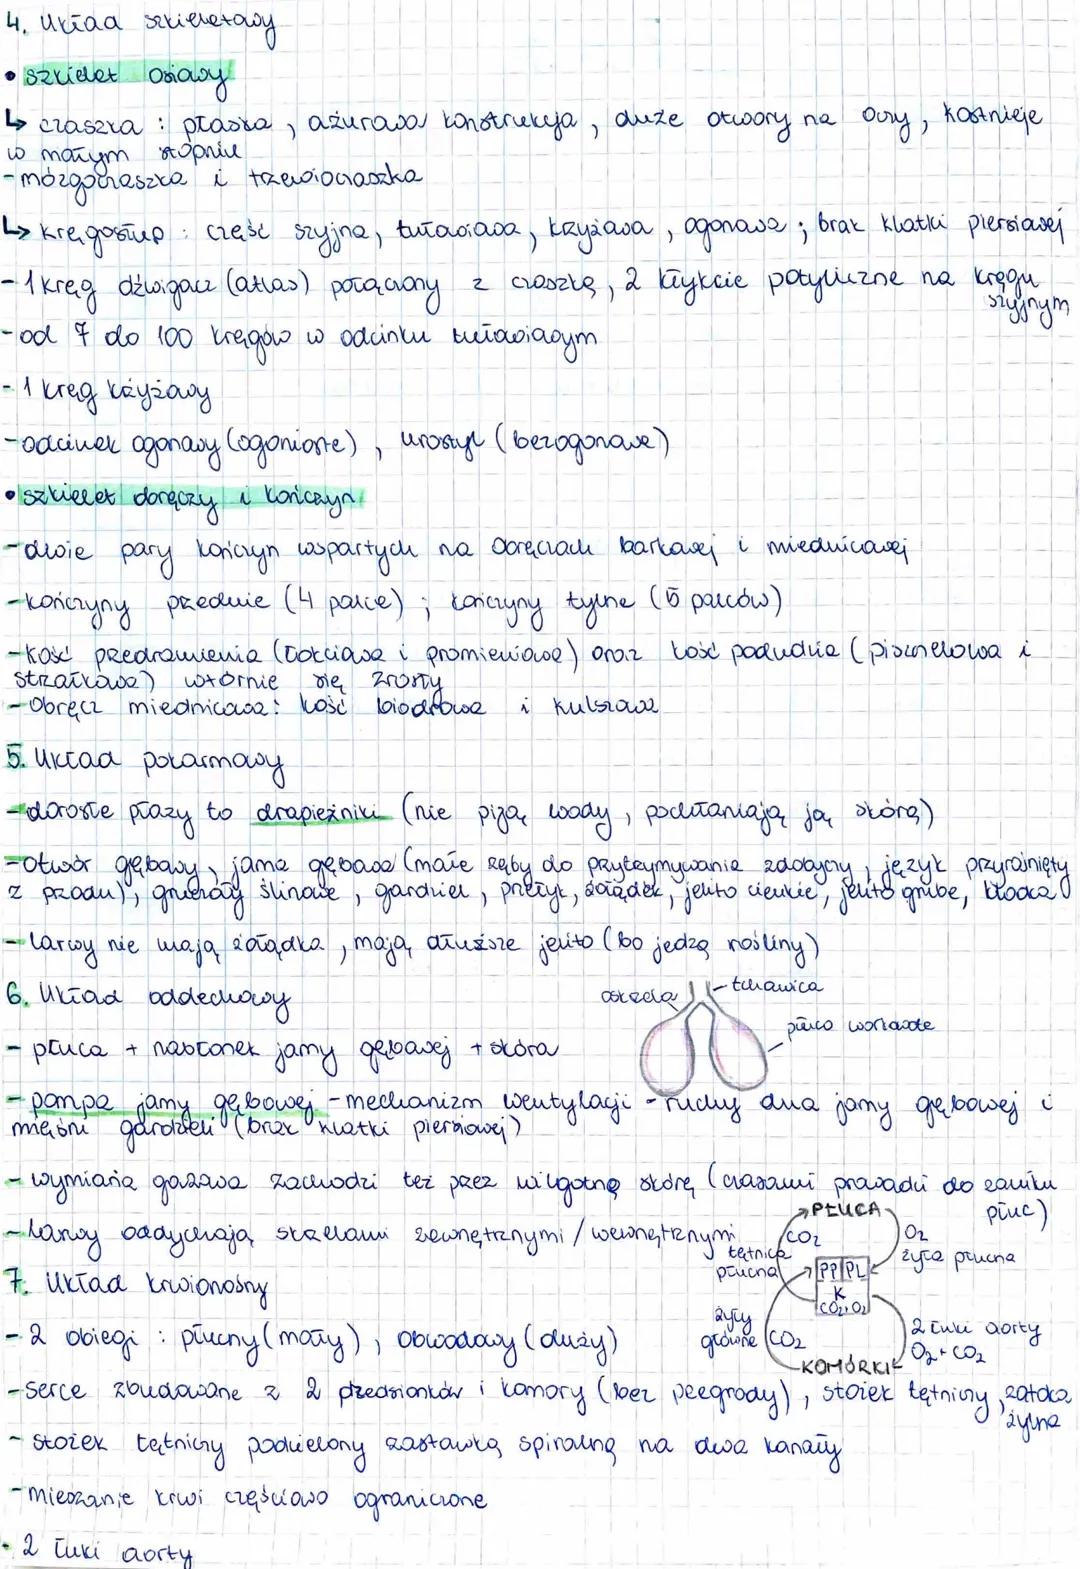 4. Układ szkieletowy
• szkielet osiowy
↳ czaszka : płaska, ażurowa konstrukcja, duże otwory na oczy, kostnieje
w małym stopniu
- mózgoczaszka i trzewioczaszka
↳ kręgosłup : część szyjna, tułowiowa, krzyżowa, ogonowa ; brak klatki piersiowej
- 1 kręg dźwigacz (atlas) połączony z czaszką, 2 kłykcie potyliczne na kręgu
szyjnym
- od 7 do 100 kręgów w odcinku tułowiowym
- 1 kręg krzyżowy
- odcinek ogonowy (ogoniaste), urostyl (bezogonowe)
• szkielet obręczy i kończyn
- dwie pary kończyn wspartych na obręczach barkowej i miednicowej
- kończyny przednie (4 palce) ; kończyny tylne (5 palców)
- kość przedramienia (łokciowa i promieniowa) oraz kość podudzia (piszczelowa i
strzałkowa) wtórnie się zrosły
- Obręcz miednicowa: kość biodrowa i kulszowa
5. Układ pokarmowy
- dorosłe płazy to drapieżniki (nie piją wody, pochłaniają ją skórą)
- otwór gębowy, jama gębowa (małe zęby do przytrzymywania zdobyczy, język przyrośnięty
z przodu), gruczoły ślinowe, gardziel, przełyk, żołądek, jelito cienkie, jelito grube, kloaka
- larwy nie mają żołądka, mają dłuższe jelito (bo jedzą rośliny)
6. Układ oddechowy
oskrzela
tchawica
płuco workowate
- płuca + nabłonek jamy gębowej + skóra
- pompa jamy gębowej - mechanizm wentylacji - ruchy dna jamy gębowej i
mięśni gardzieli (brak klatki piersiowej)
- wymiana gazowa zachodzi też przez wilgotną skórę (czasami prowadzi do zaniku
płuc)
- larwy oddychają skrzelami zewnętrznymi / wewnętrznymi
PŁUCA
CO2
O2
tętnica
płucna
żyła płucna
PP PL
K
CO2+O2
żyły
główne
CO2
2 łuki aorty
O2+CO2
KOMÓRKI
7. Układ krwionośny
- 2 obiegi : płucny (mały), obwodowy (duży)
- serce zbudowane z 2 przedsionków i komory (bez przegrody), stożek tętniczy, zatoka
żylna
- stożek tętniczy podzielony zastawką spiralną na dwa kanały
- mieszanie krwi częściowo ograniczone
- 2 łuki aorty